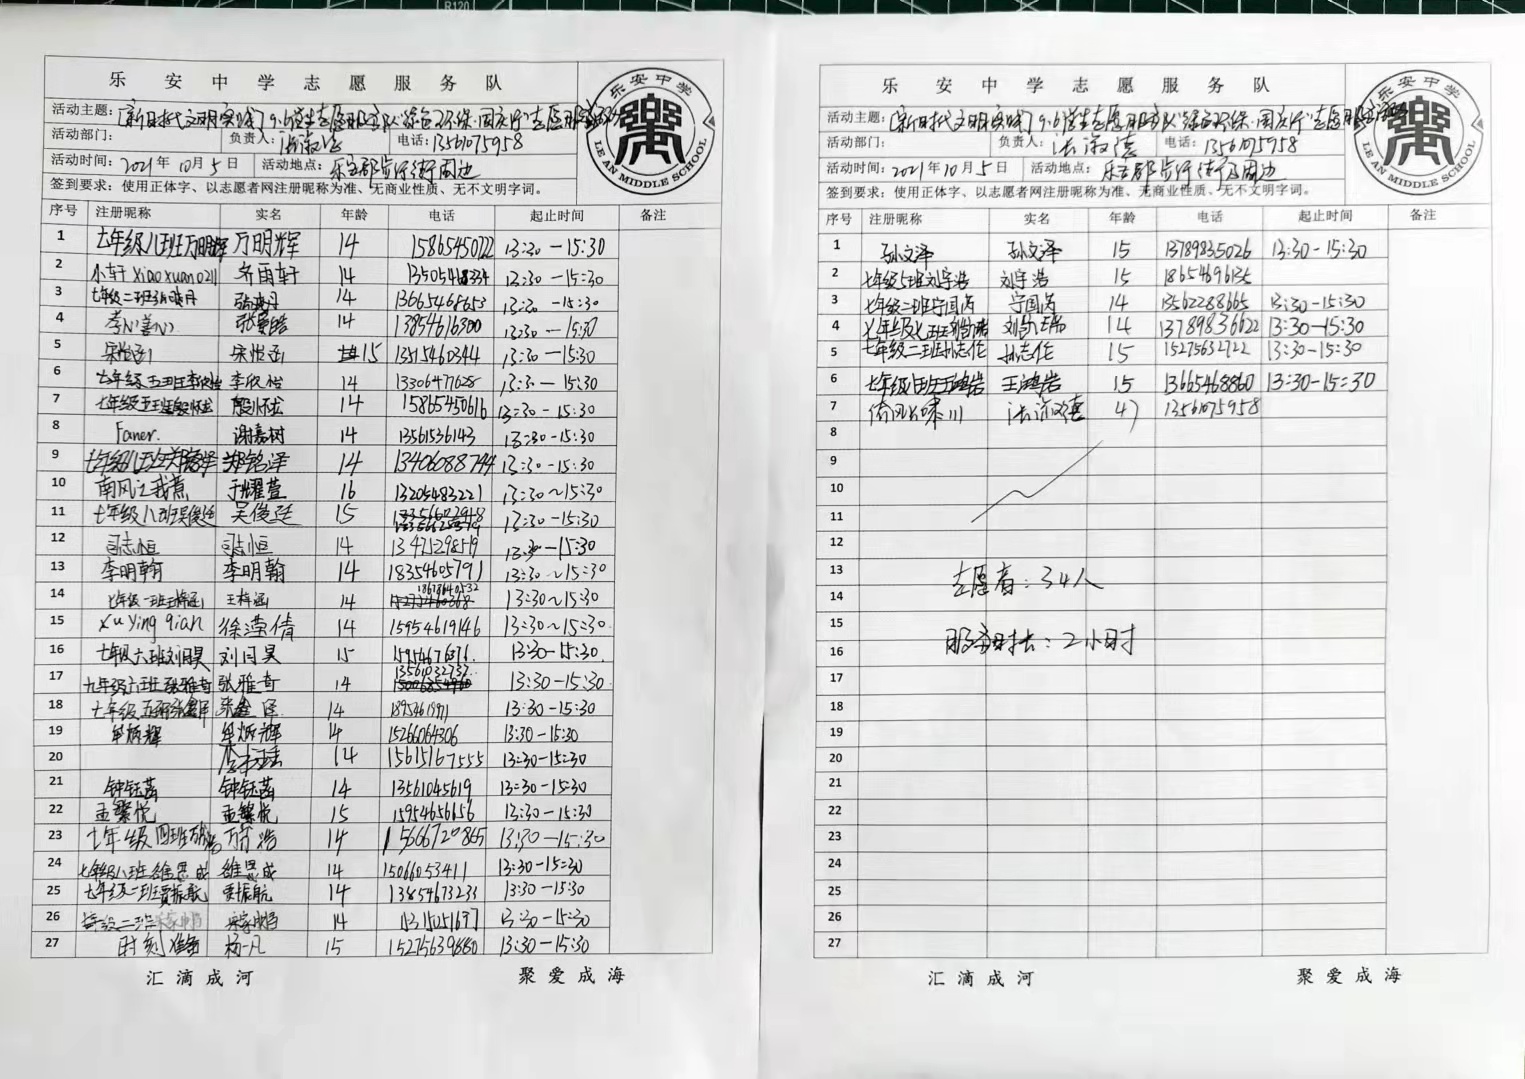 R120
乐安中学志愿服务队
乐安中学
LE AN MIDDLE SCHOOL
活动主题：[新时代文明实践]9.6学生志愿服务队"绿色环保·国庆行"志愿服务活动
活动部门： 负责人： 电话：13561075958
活动时间：2021年10月5日 活动地点：乐安郡步行街周边
签到要求：使用正体字、以志愿者网注册昵称为准、无商业性质、无不文明字词。
序号 注册昵称 实名 年龄 电话 起止时间 备注
1 七年级八班万明辉 万明辉 14 15865450722 13:30-15:30
2 小轩xiaoxuan0211 齐雨轩 14 13:30-15:30
3 七年级二班 14 13665468653 13:30-15:30
4 14 13854616300 13:30-15:30
5 15 13515460344 13:30-15:30
6 七年级五班李欣怡 李欣怡 14 13306477628 13:30-15:30
7 七年级五班殷怀宏 殷怀宏 14 15865450616 13:30-15:30
8 Faner. 谢嘉树 14 13561536143 13:30-15:30
9 七年级八班郑铭泽 郑铭泽 14 13406088744 13:30-15:30
10 南风过我 于耀萱 16 13205483221 13:30~15:30
11 七年级八班吴俊廷 吴俊廷 15 13:30-15:30
12 司志恒 司志恒 14 13471298519 13:30-15:30
13 李明翰 李明翰 14 18354605791 13:30~15:30
14 七年级一班王梓涵 王梓涵 14 18678640532 13:30~15:30
15 Xu Ying qian 徐滢倩 14 15954619146 13:30~15:30
16 七年级六班刘闰昊 刘闰昊 15 13:30-15:30
17 九年级六班张雅奇 张雅奇 14 13561032737 13:30-15:30
18 七年级五班 14 13:30-15:30
19 牟炳辉 牟炳辉 14 15266064306 13:30-15:30
20 14 15615167555 13:30-15:30
21 钟钰菡 钟钰菡 14 13561045619 13:30-15:30
22 孟繁悦 孟繁悦 15 15954656156 13:30-15:30
23 七年级四班 14 15666720865 13:30-15:30
24 七年级八班徐恩成 徐恩成 14 15066053411 13:30-15:30
25 七年级二班贾振航 贾振航 14 13854673233 13:30-15:30
26 七年级二班 14 13:30-15:30
27 时刻准备 杨一凡 15 15275639880 13:30-15:30
汇滴成河 聚爱成海
乐安中学志愿服务队
乐安中学
LE AN MIDDLE SCHOOL
活动主题：[新时代文明实践]9.6学生志愿服务队"绿色环保·国庆行"志愿服务活动
活动部门： 负责人： 电话：13561075958
活动时间：2021年10月5日 活动地点：乐安郡步行街周边
签到要求：使用正体字、以志愿者网注册昵称为准、无商业性质、无不文明字词。
序号 注册昵称 实名 年龄 电话 起止时间 备注
1 孙文泽 孙文泽 15 13789835026 13:30-15:30
2 七年级5班刘宇浩 刘宇浩 15 18654696135
3 七年级二班宁国芮 宁国芮 14 13562288665 13:30-15:30
4 七年级七班 14 13789836622 13:30-15:30
5 七年级二班孙志伦 孙志伦 15 15275632722 13:30-15:30
6 七年级八班王鸿岩 王鸿岩 15 13665468860 13:30-15:30
7 倚风长啸川 47 13561075958
8
9
10
11
12
13 志愿者：34人
14
15
16 服务时长：2小时
17
18
19
20
21
22
23
24
25
26
27
汇滴成河 聚爱成海